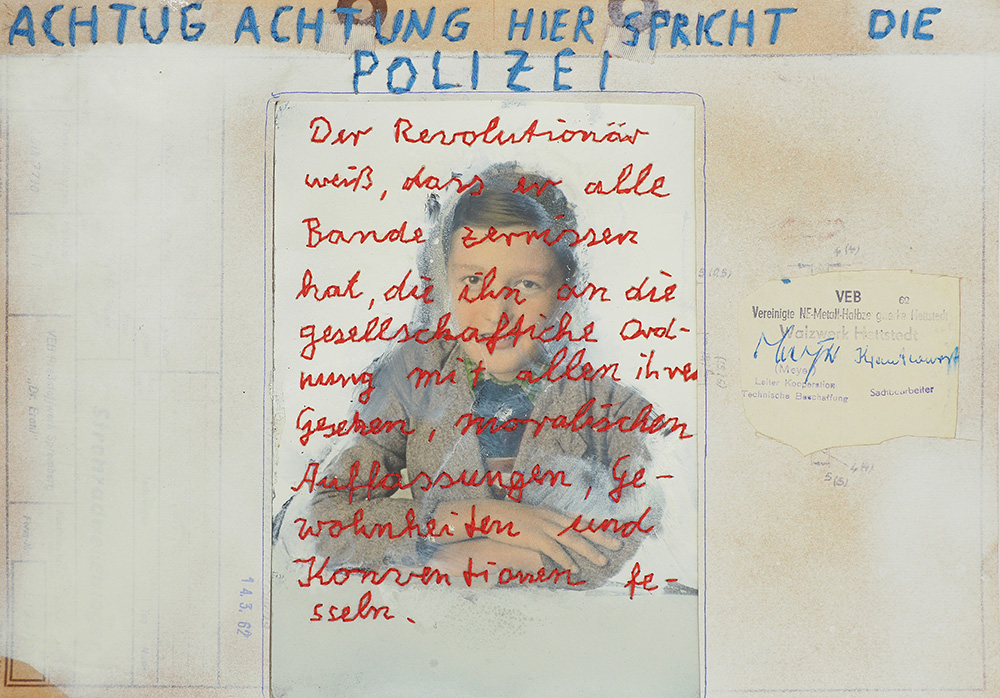 ACHTUG ACHTUNG HIER SPRICHT DIE
POLIZEI
Der Revolutionär
weiß, dass er alle
Bande zerrissen
hat, die ihn an die
gesellschaftliche Ord-
nung mit allen ihren
Gesetzen, moralischen
Auffassungen, Ge-
wohnheiten und
Konventionen fe-
sseln.
14.3.62
VEB 62
Vereinigte NE-Metall-Halbze Hettstedt
Walzwerk Hettstedt
(Meye
Leiter Kooperation
Technische Beschaffung
Sachbearbeiter
4(4)
5(5)
4(4)